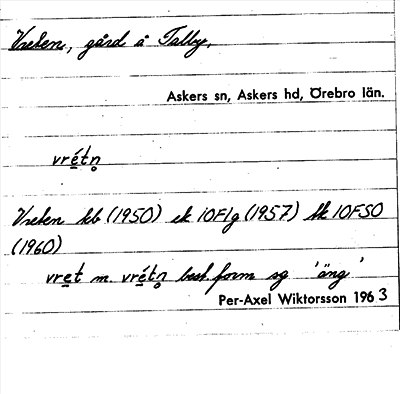 Vreten, gård å Talby,
Askers sn, Askers hd, Örebro län.
vré̲tn̥
Vreten kb (1950) ek 10F1g (1957) tk 10FSO
(1960)
vre̲t m. vré̲tn̥ best. form sg 'äng'
Per-Axel Wiktorsson 1963